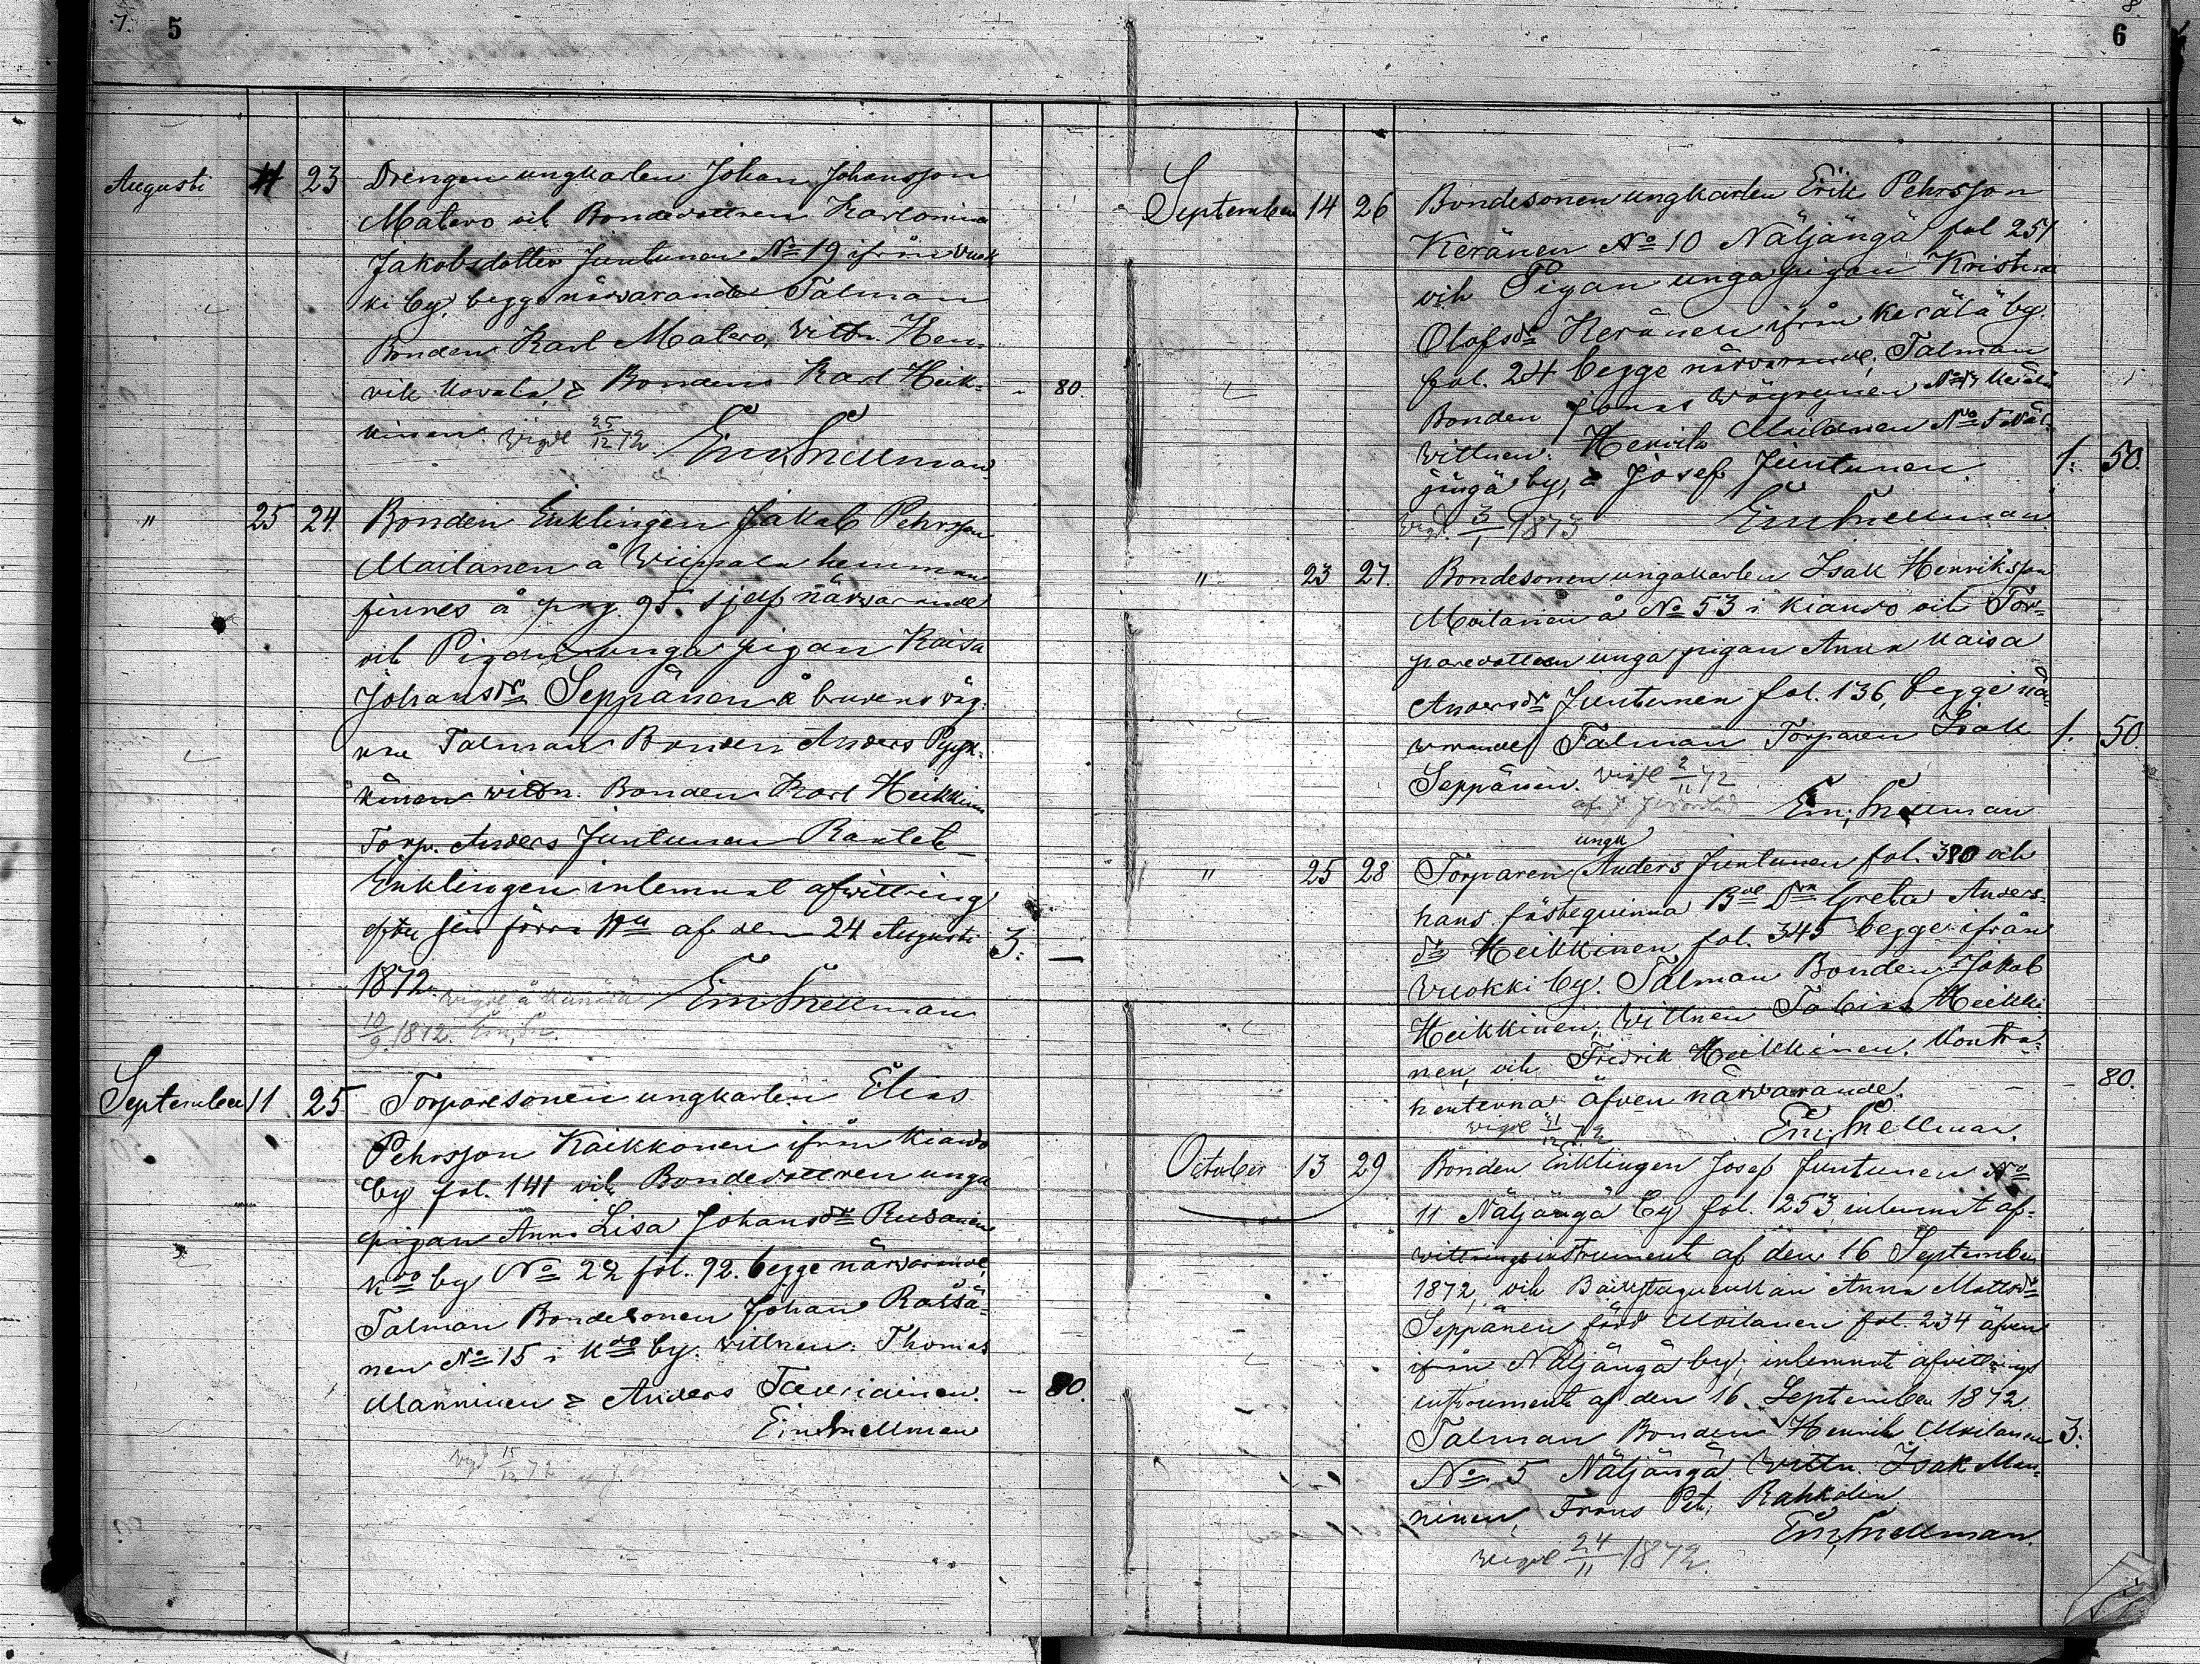 7. 5
Augusti 11 23 Drengen ungkarlen Johan Johansson
Matero och Bondedottren Karolina
Jakobsdotter Juntunen No 19 ifrån Vuok
ki by, begge närvarande Talman
Bonden Karl Matero, Vittn. Hen
rik Kovala, & Bonden Karl Heik-
kinen. Vigde 25/12 72. - 80.
Em. Snellman
" 25 24 Bonden Enklingen Jakob Pehrsson
Moilanen å Wiipsala hemman
finnes å pag. 95. sjelf närvarande
och Pigan unga pigan Kaisa
Johansdr Seppänen å brudens väg-
nar Talman Bonden Anders Pyyk-
könen vittn. Bonden Karl Heikkinen
Torp. Anders Juntunen
Enklingen inlemnat afvittring
efter sin förra Hu af den 24 Augusti 3: —
1872. Vigde å
10/9 1872. Em. Sn. Em Snellman
September 11 25 Torparesonen ungkarlen Elias
Pehrsson Kaikkonen ifrån Kiando
by fol. 141 och Bondedottren unga
pigan Anna Lisa Johansdr Rusanen
Kdo by No 22 fol. 92. begge närvarande,
Talman Bondesonen Johan Räisä-
nen No 15 i Kdo by. Vittnen: Thomas
Manninen & Anders Tauriainen. - 80.
Em Snellman
Vigd 15/12 72
8. 6
September 14 26 Bondesonen ungkarlen Erik Pehrsson
Keränen No 10 Näljängä fol 251
och Pigan unga pigan Kristina
Olofsdr Keränen ifrån Kerälä by.
fol. 24 begge närvarande, Talman
Bonden Jonas Väyrynen No Kerälä
Vittnen: Henrik Moilanen No 5 Näl-
jängä by, & Josef Juntunen 1: 50.
Vigd. 3/1 1873 Em Snellman.
" 23 27. Bondesonen ungakarlen Isak Henriksson
Moilanen å No 53 i Kiando och Tor-
paredottren unga pigan Anna Kaisa
Andersdr Juntunen fol. 136, begge när-
varande Talman Torparen Isak 1. 50
Seppänen. Vigde 2/11 72
Em. Snellman
" 25 28 Torparen unga Anders Juntunen fol. 380 och
hans fästeqvinna Bde Drn Greta Anders-
dr Heikkinen fol. 345 begge ifrån
Vuokki by. Talman Bonden Jakob
Heikkinen, Vittnen Tobias Heikki-
nen, och Fredrik Heikkinen. Kontra-
henterna äfven närvarande. - - 80.
Vigde 31/12 72 Em. Snellman.
October 13 29 Bonden Enklingen Josef Juntunen No
11 Näljängä by fol. 253, inlemnat af-
vittringsinstrument af den 16 September
1872, och Anna Mattsdr
Seppänen född Moilanen fol. 234 äfven
ifrån Näljängä by, inlemnat afvittrings
instrument af den 16 September 1872
Talman Bonden Henrik Moilanen 3:
No 5 Näljängä. Vittn. Isak Man-
ninen, Frans Pet. Rahkolin
Em. Snellman.
Vigde 24/11 1872.